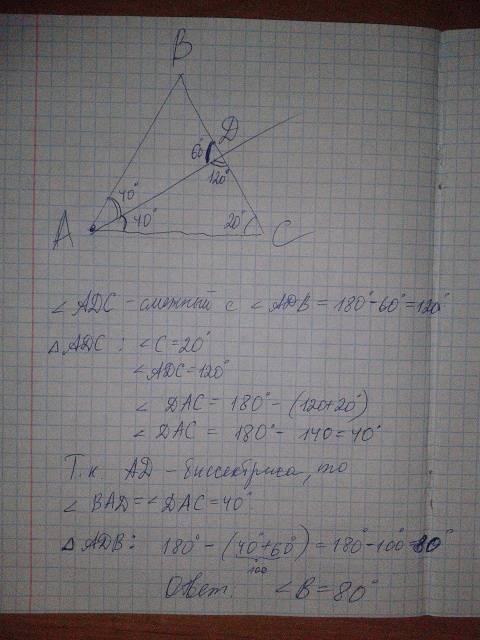 B
D
60°
120°
40°
40°
20°
A
C
∠ ADC - смежный с ∠ ADB = 180°-60°=120°
△ ADC : ∠C=20°
∠ADC=120°
∠ DAC = 180° - (120+20°)
∠ DAC = 180° - 140=40°
Т.к AD - биссектриса, то
∠ BAD=∠ DAC=40°
△ ADB: 180° - (40°+60°) = 180°-100°=80°
100
Ответ. ∠B=80°